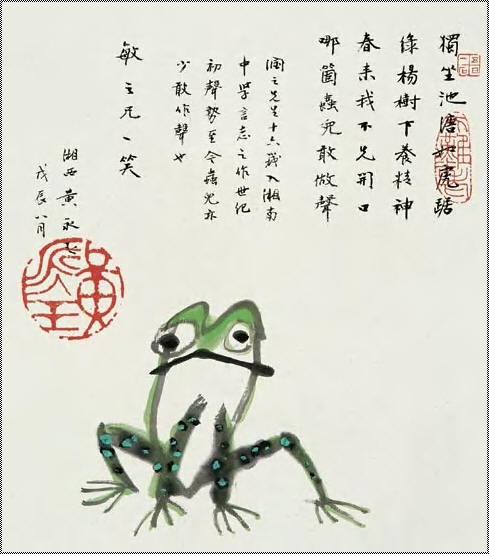 獨坐池塘如虎踞
綠楊樹下養精神
春来我不先開口
哪箇蟲兒敢做聲
潤之先生十六歲入湘南
中學言志之作世紀
初聲勢至今蟲兒亦
少敢作聲也
敏之兄一笑
湘西黃永玉
戊辰八月